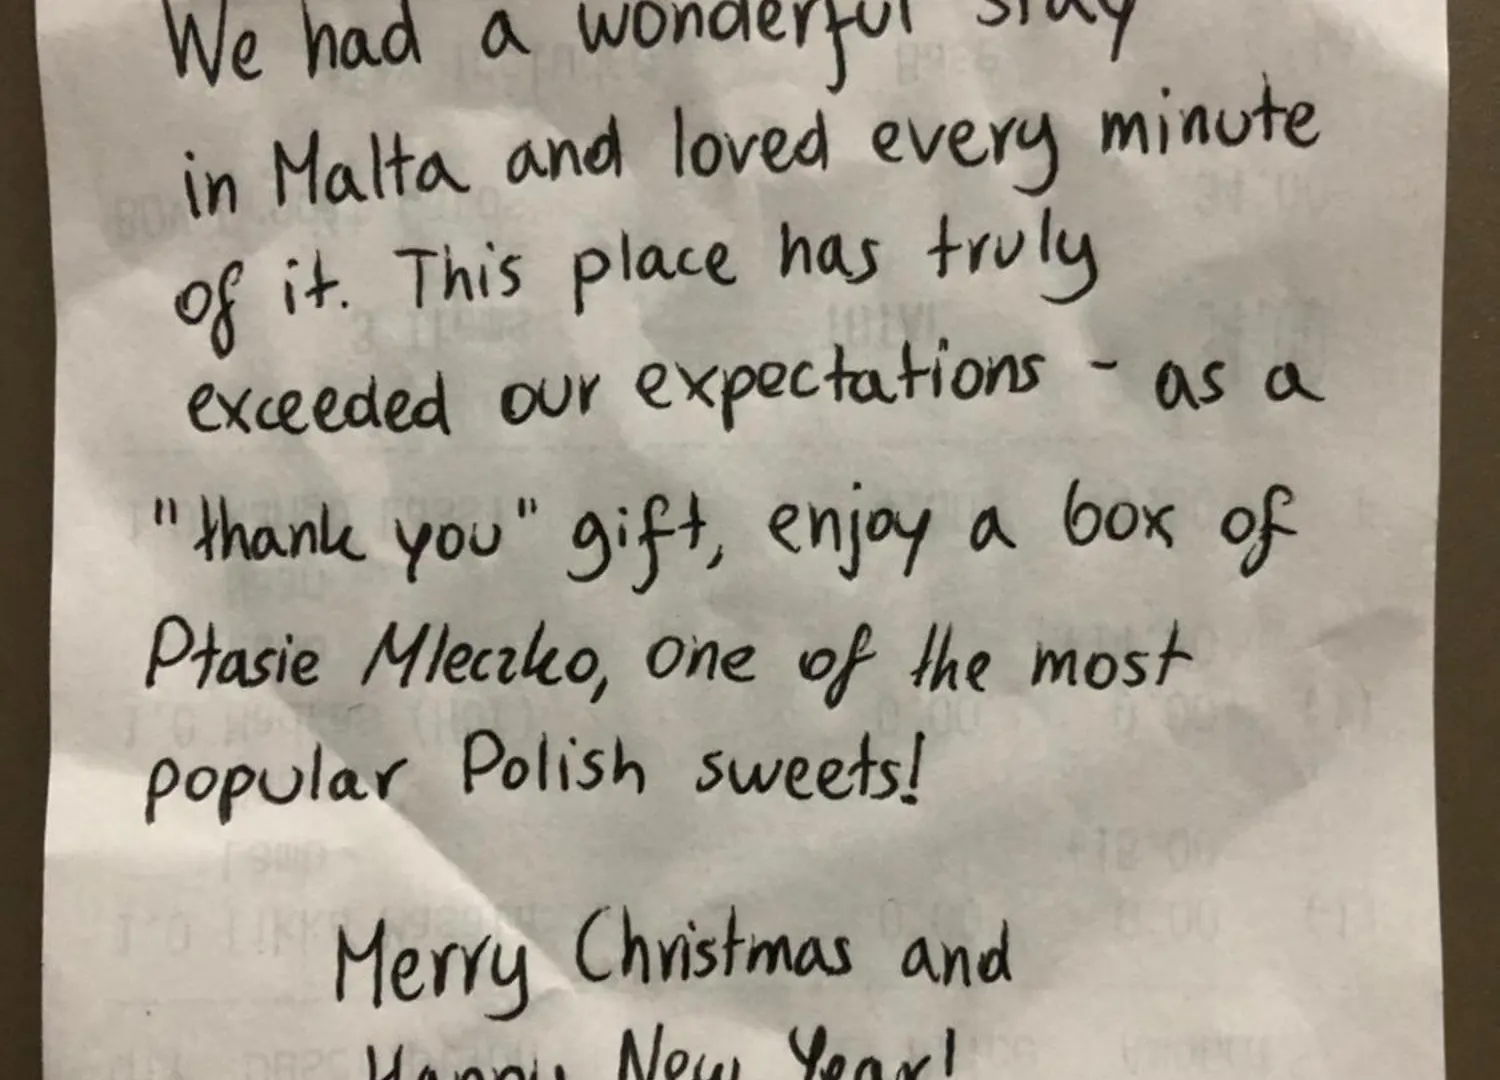 We had a wonderful stay
in Malta and loved every minute
of it. This place has truly
exceeded our expectations - as a
"thank you" gift, enjoy a box of
Ptasie Mleczko, one of the most
popular Polish sweets!
Merry Christmas and
Happy New Year!